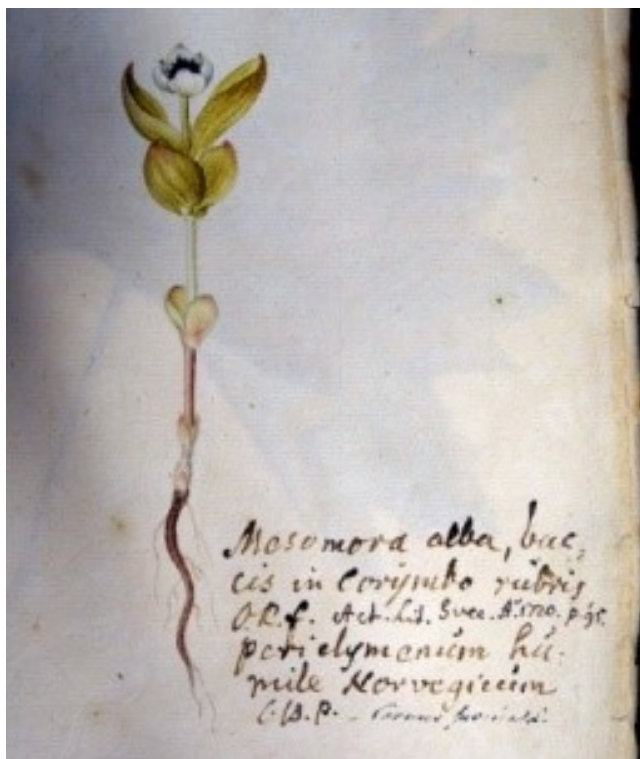 Mesomora alba, bac,
cis in Corymbo rubris
O.R.f. Act. Lit. Suec. A. 1720. p. 95.
periclymenum hu-
mile Norvegicum
C.B.P.